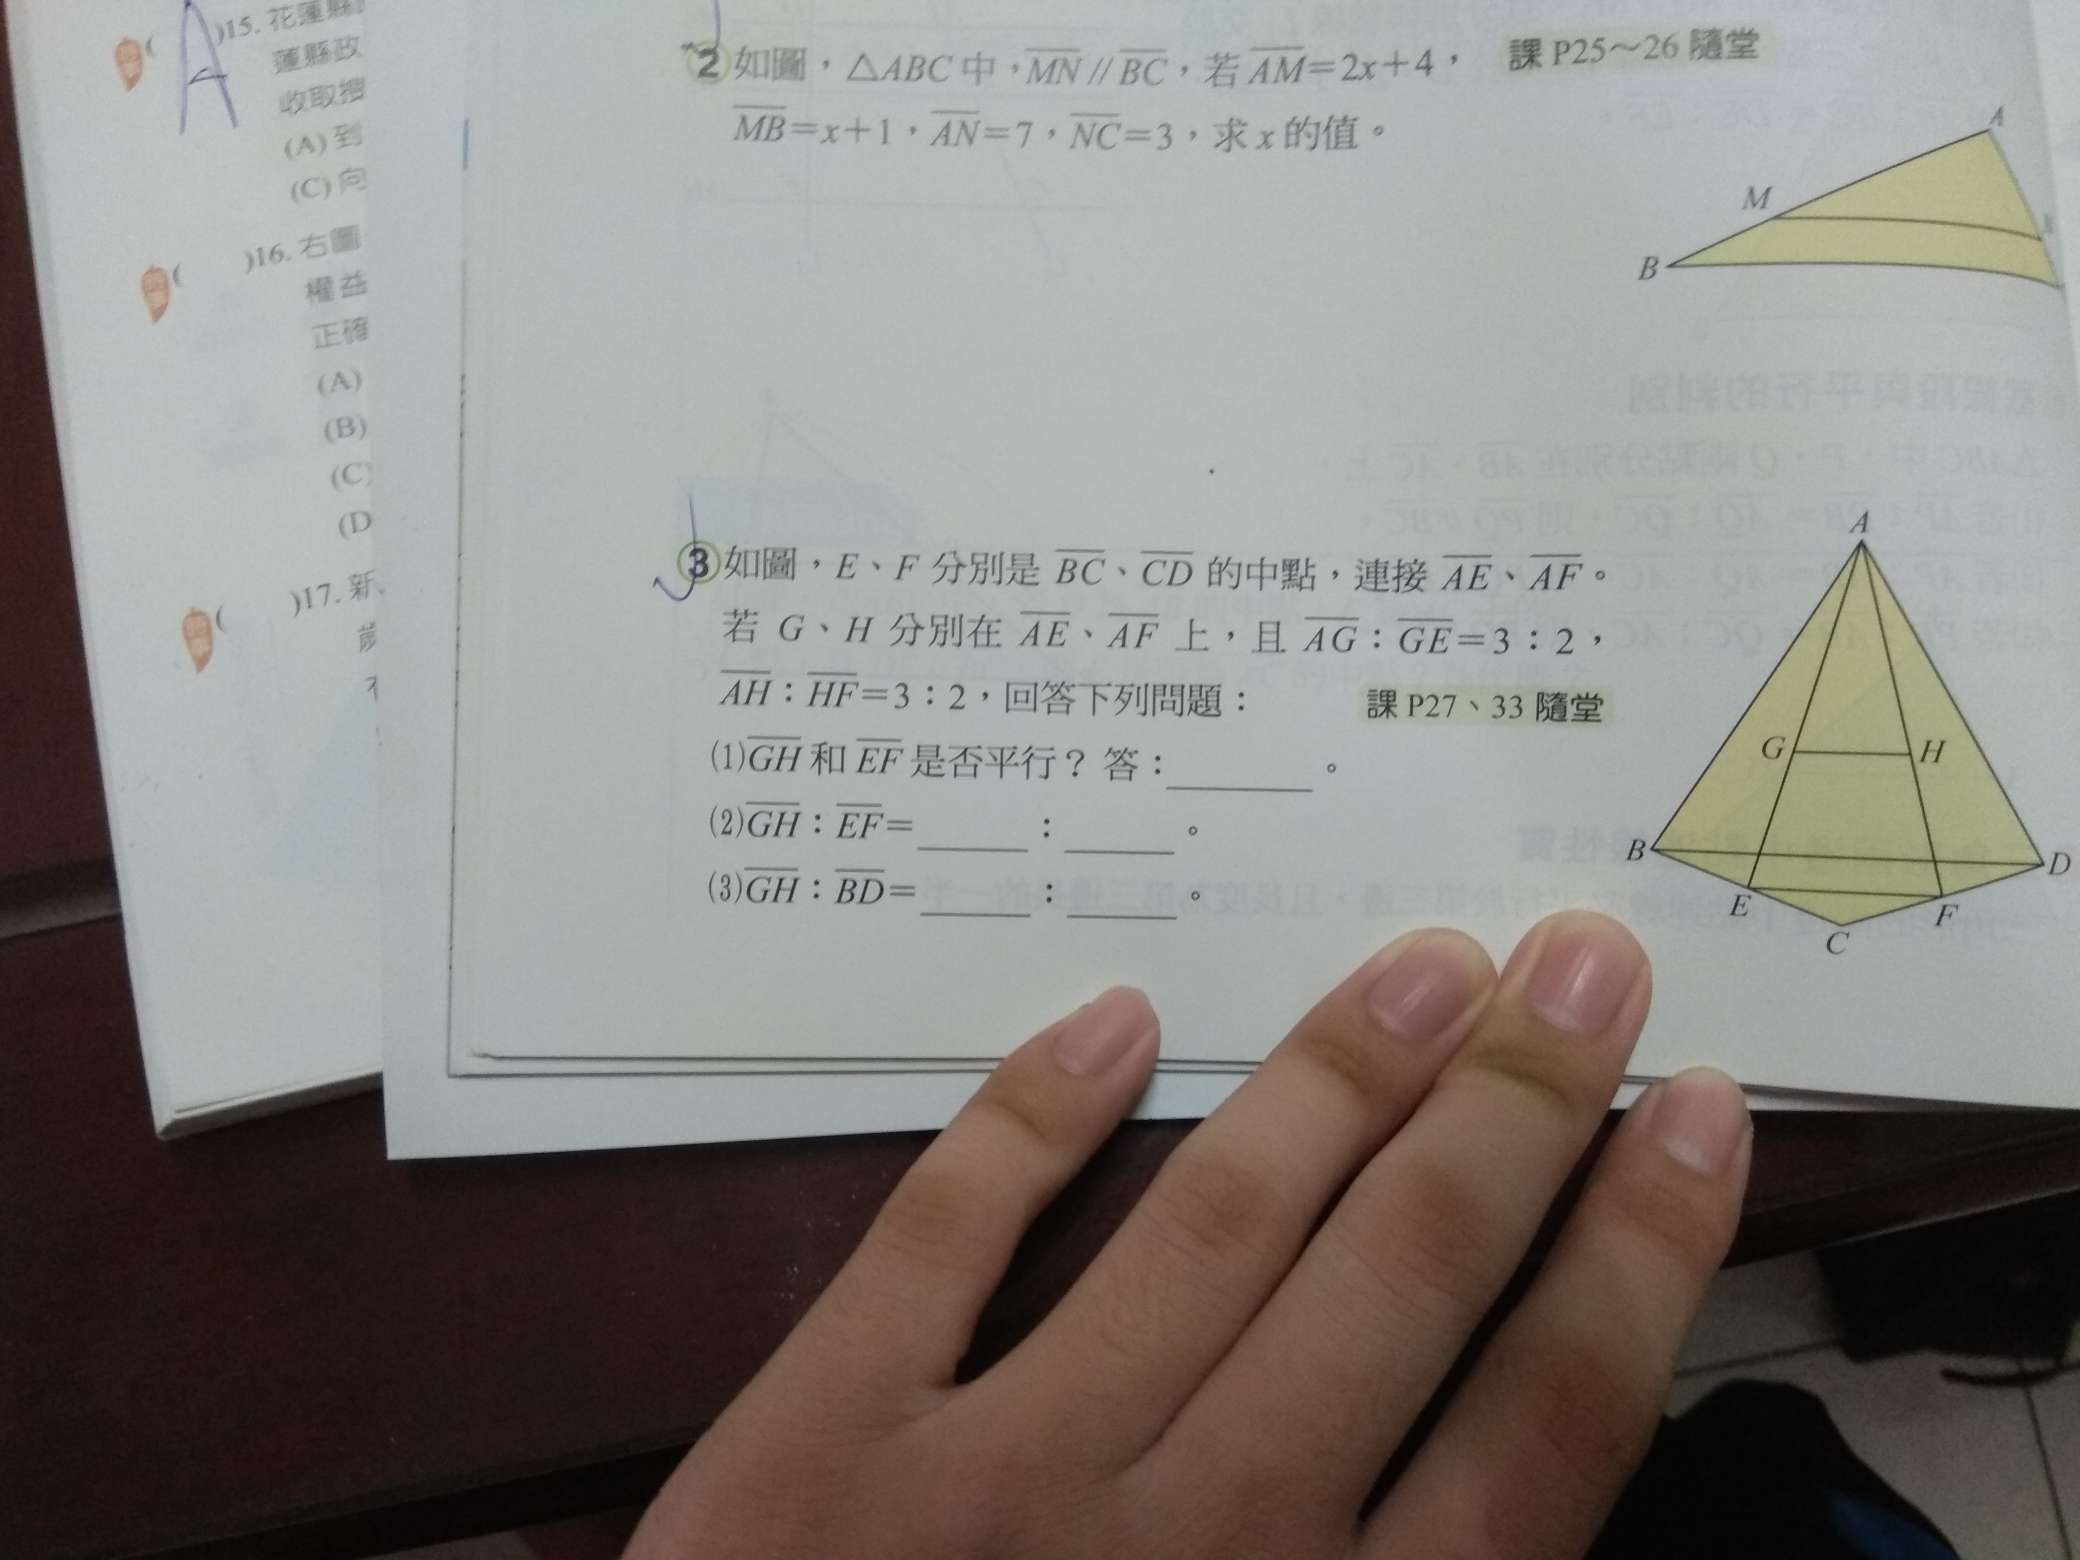 A
)15. 花蓮縣
蓮縣政
收取搜
(A) 到
(C) 向
( )16. 右圖
權益
正確
(A)
(B)
(C)
(D
( )17. 新
歲
2 如圖，△ABC 中，MN // BC，若 AM＝2x＋4， 課 P25～26 隨堂
MB＝x＋1，AN＝7，NC＝3，求 x 的值。
A
M
B
3 如圖，E、F 分別是 BC、CD 的中點，連接 AE、AF。
若 G、H 分別在 AE、AF 上，且 AG：GE＝3：2，
AH：HF＝3：2，回答下列問題： 課 P27、33 隨堂
(1)GH 和 EF 是否平行？答：______。
(2)GH：EF＝______：______。
(3)GH：BD＝______：______。
A
G H
B D
E F
C